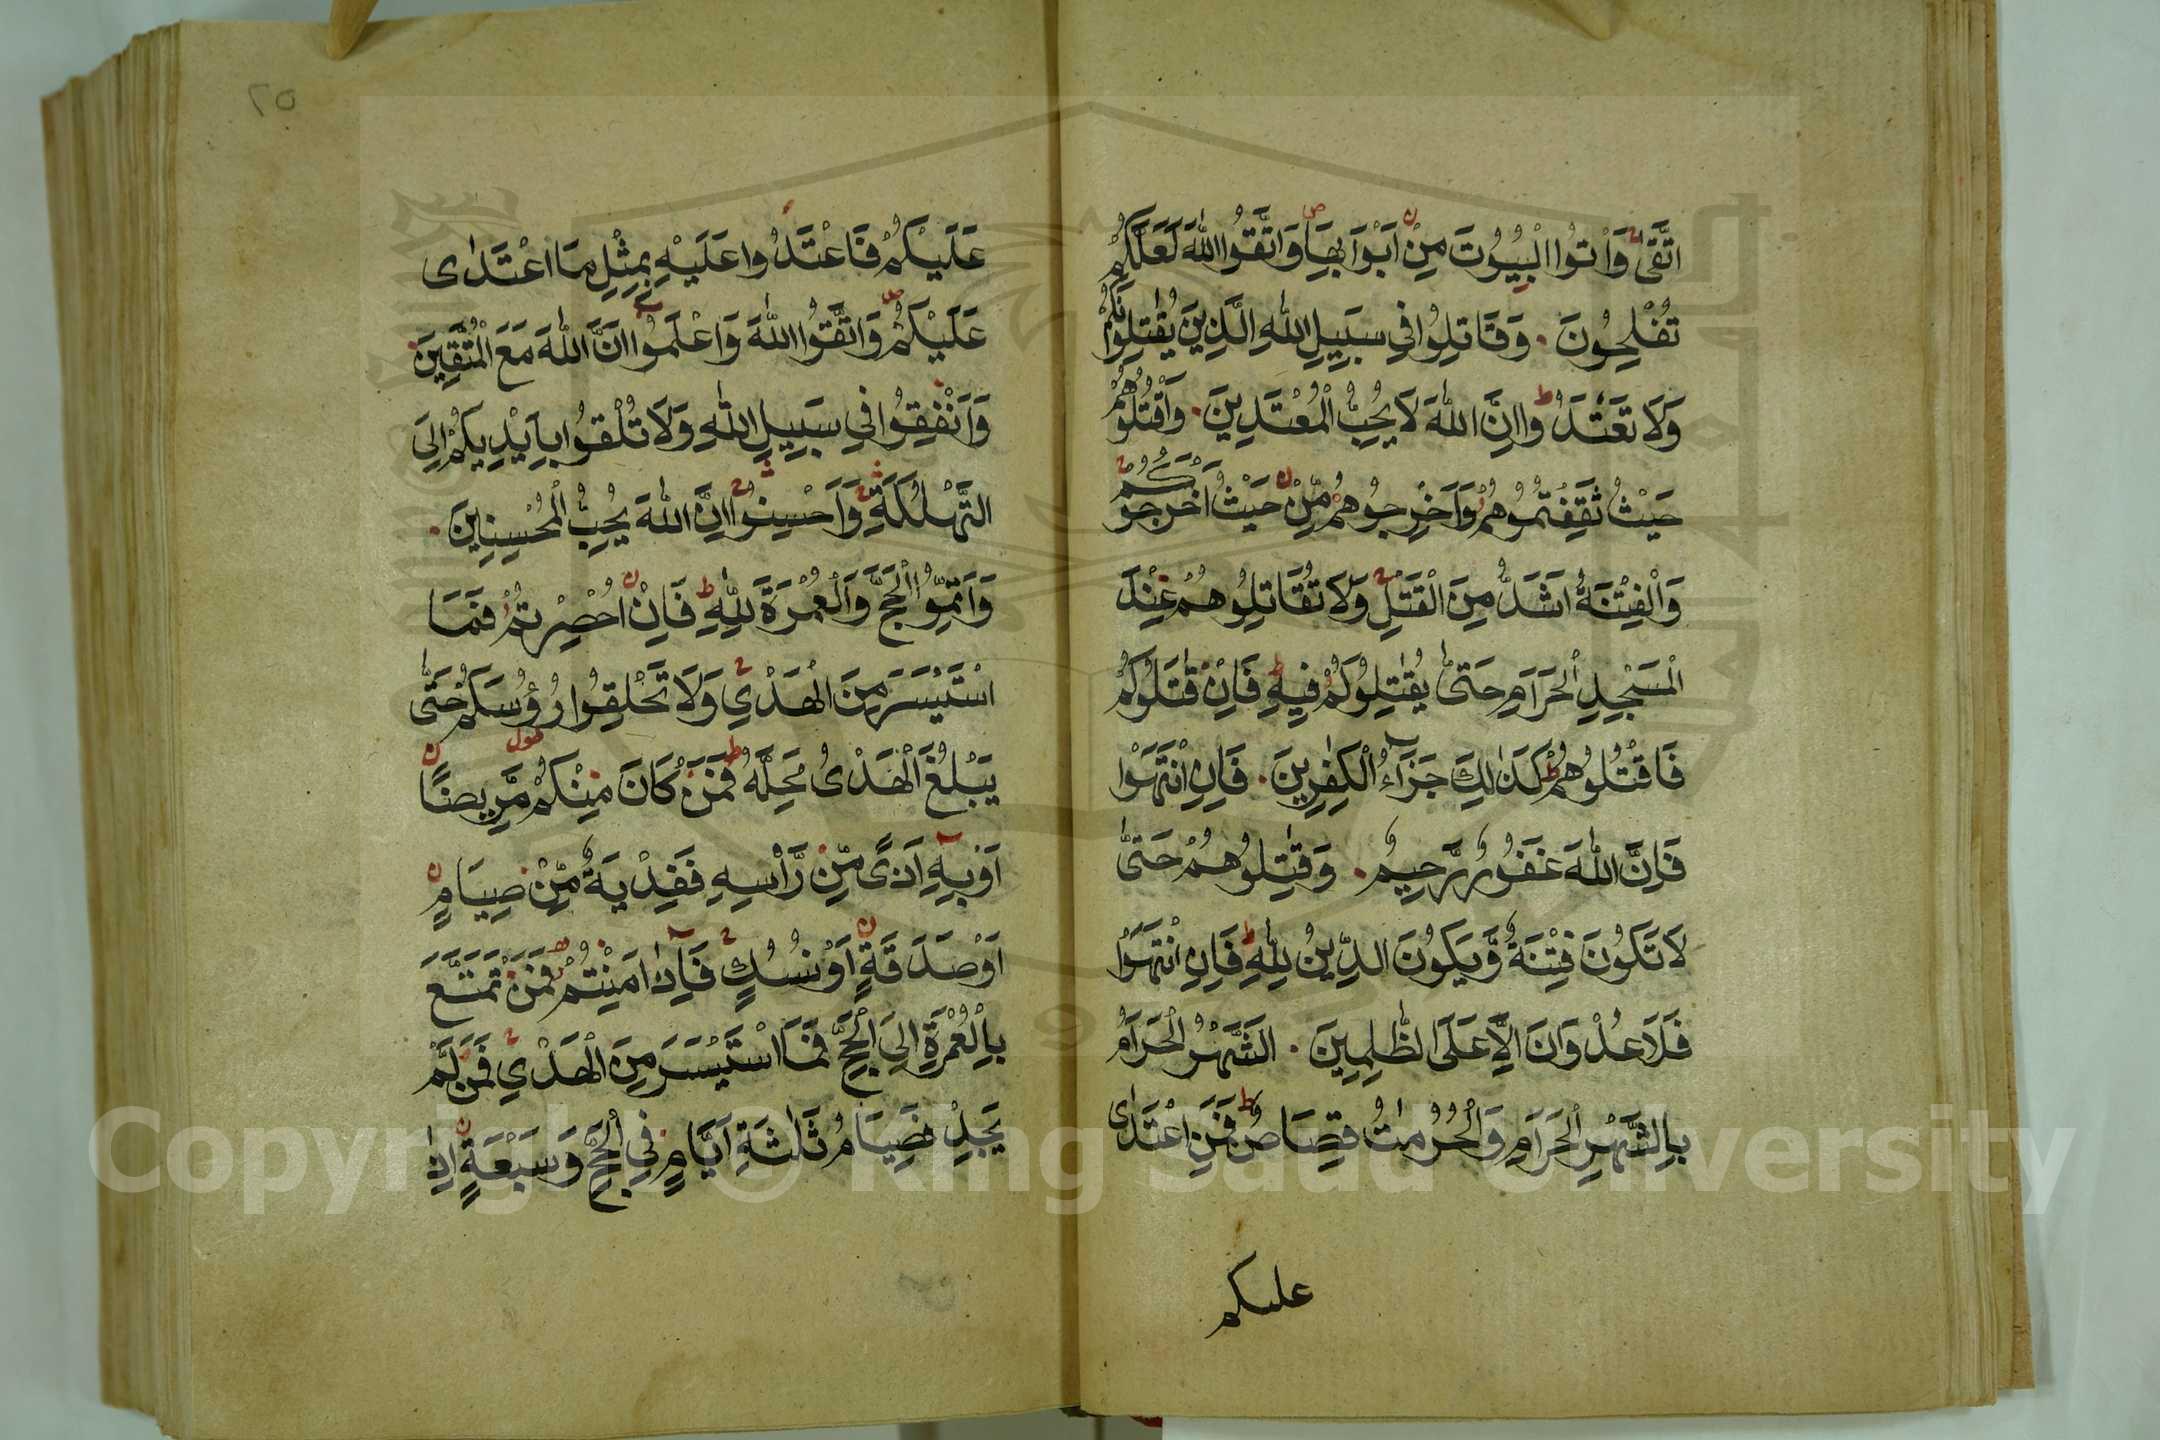 اتَّقَىٰ وَاْتُوا الْبُيُوْتَ مِنْ اَبْوَابِهَا وَاتَّقُوا اللّٰهَ لَعَلَّكُمْ
تُفْلِحُوْنَ . وَقَاتِلُوْا فِي سَبِيْلِ اللّٰهِ الَّذِيْنَ يُقٰتِلُوْنَكُمْ
وَلَا تَعْتَدُوا اِنَّ اللّٰهَ لَا يُحِبُّ الْمُعْتَدِيْنَ . وَاقْتُلُوْهُمْ
حَيْثُ ثَقِفْتُمُوْهُمْ وَاَخْرِجُوْهُمْ مِّنْ حَيْثُ اَخْرَجُوْكُمْ
وَالْفِتْنَةُ اَشَدُّ مِنَ الْقَتْلِ وَلَا تُقَاتِلُوْهُمْ عِنْدَ
الْمَسْجِدِ الْحَرَامِ حَتّٰى يُقٰتِلُوْكُمْ فِيْهِ فَاِنْ قٰتَلُوْكُمْ
فَاقْتُلُوْهُمْ كَذٰلِكَ جَزَآءُ الْكٰفِرِيْنَ . فَاِنِ انْتَهَوْا
فَاِنَّ اللّٰهَ غَفُوْرٌ رَّحِيْمٌ . وَقٰتِلُوْهُمْ حَتّٰى
لَا تَكُوْنَ فِتْنَةٌ وَّيَكُوْنَ الدِّيْنُ لِلّٰهِ فَاِنِ انْتَهَوْا
فَلَا عُدْوَانَ اِلَّا عَلَى الظّٰلِمِيْنَ . الشَّهْرُ الْحَرَامُ
بِالشَّهْرِ الْحَرَامِ وَالْحُرُمٰتُ قِصَاصٌ فَمَنِ اعْتَدٰى
عليكم
٢٥
عَلَيْكُمْ فَاعْتَدُوا عَلَيْهِ بِمِثْلِ مَا اعْتَدٰى
عَلَيْكُمْ وَاتَّقُوا اللّٰهَ وَاعْلَمُوْا اَنَّ اللّٰهَ مَعَ الْمُتَّقِيْنَ .
وَاَنْفِقُوْا فِي سَبِيْلِ اللّٰهِ وَلَا تُلْقُوْا بِاَيْدِيْكُمْ اِلَى
التَّهْلُكَةِ وَاَحْسِنُوْا اِنَّ اللّٰهَ يُحِبُّ الْمُحْسِنِيْنَ .
وَاَتِمُّوا الْحَجَّ وَالْعُمْرَةَ لِلّٰهِ فَاِنْ اُحْصِرْتُمْ فَمَا
اسْتَيْسَرَ مِنَ الْهَدْيِ وَلَا تَحْلِقُوْا رُؤُسَكُمْ حَتّٰى
يَبْلُغَ الْهَدْيُ مَحِلَّهُ فَمَنْ كَانَ مِنْكُمْ مَّرِيْضًا
اَوْ بِهِ اَذًى مِّنْ رَّاْسِهِ فَفِدْيَةٌ مِّنْ صِيَامٍ
اَوْ صَدَقَةٍ اَوْ نُسُكٍ فَاِذَا اَمِنْتُمْ فَمَنْ تَمَتَّعَ
بِالْعُمْرَةِ اِلَى الْحَجِّ فَمَا اسْتَيْسَرَ مِنَ الْهَدْيِ فَمَنْ لَّمْ
يَجِدْ فَصِيَامُ ثَلٰثَةِ اَيَّامٍ فِي الْحَجِّ وَسَبْعَةٍ اِذَا
Copyright © King Saud University